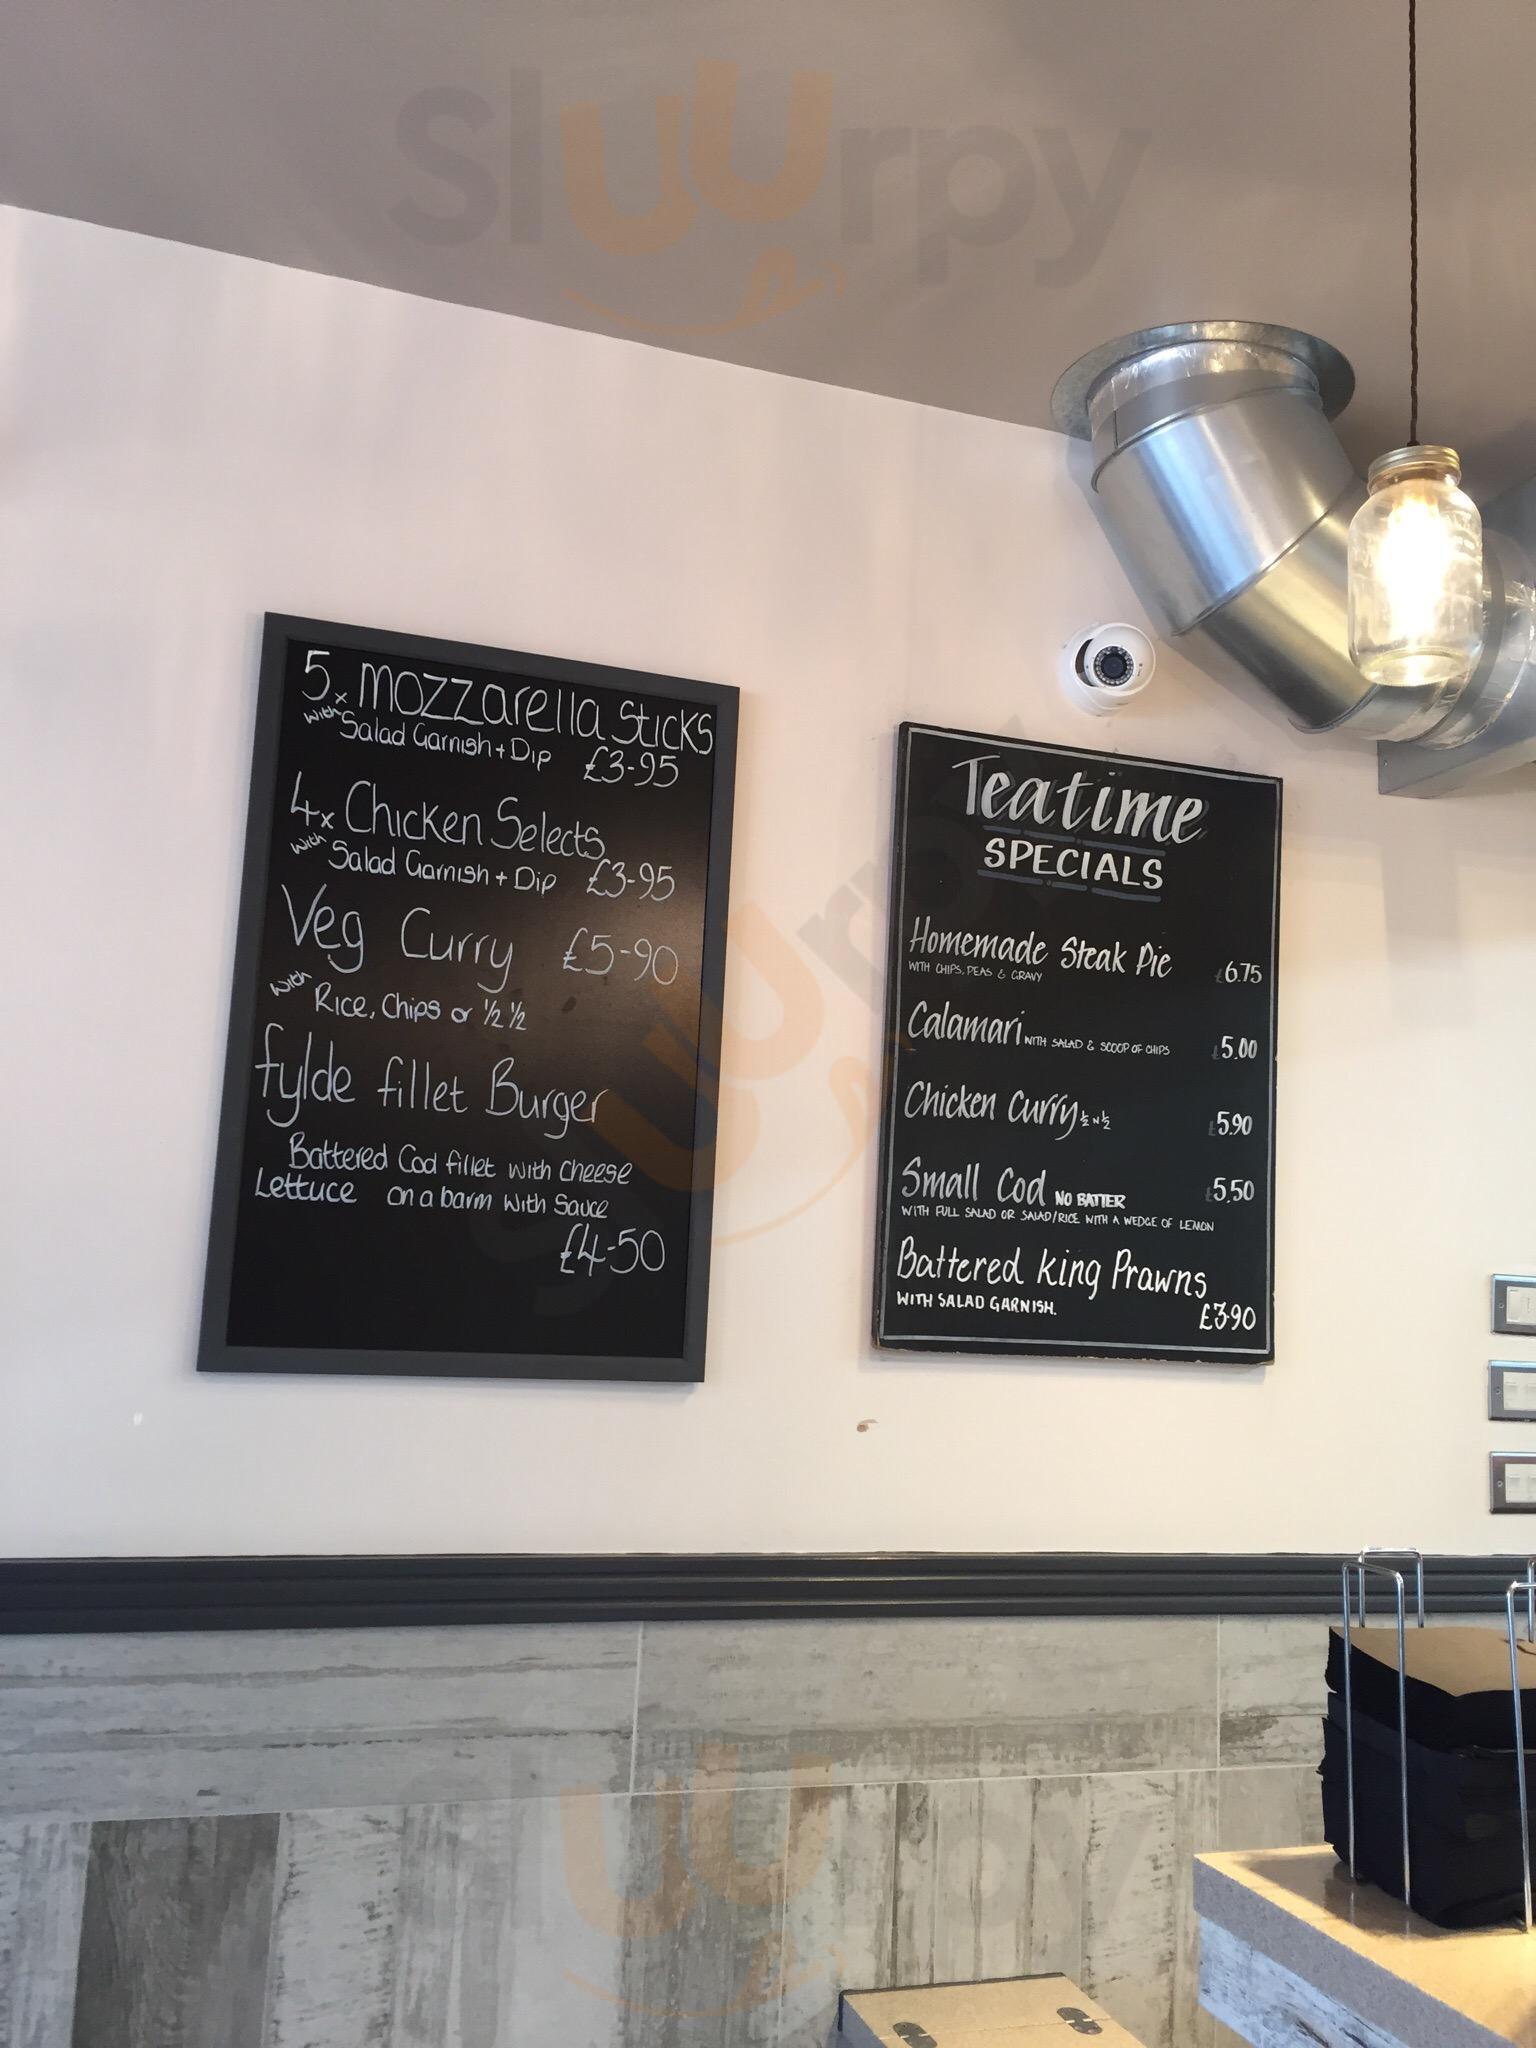 Sluurpy
5x Mozzarella Sticks
with Salad Garnish + Dip £3-95
4x Chicken Selects
with Salad Garnish + Dip £3-95
Veg Curry £5-90
with Rice, Chips or 1/2 1/2
Fylde fillet Burger
Battered Cod fillet with cheese
Lettuce on a barm with Sauce
£4-50
Teatime
SPECIALS
Homemade Steak Pie £6.75
WITH CHIPS, PEAS & GRAVY
Calamari WITH SALAD & SCOOP OF CHIPS £5.00
Chicken Curry ½ N ½ £5.90
Small Cod NO BATTER £5.50
WITH FULL SALAD OR SALAD/RICE WITH A WEDGE OF LEMON
Battered King Prawns
WITH SALAD GARNISH. £3.90
Sluurpy
Sluurpy